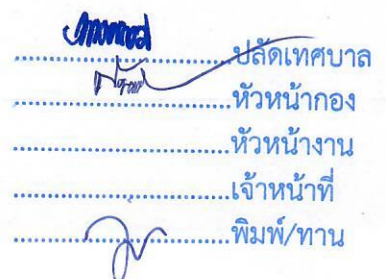 ..............................ปลัดเทศบาล
..............................หัวหน้ากอง
..............................หัวหน้างาน
..............................เจ้าหน้าที่
..............................พิมพ์/ทาน